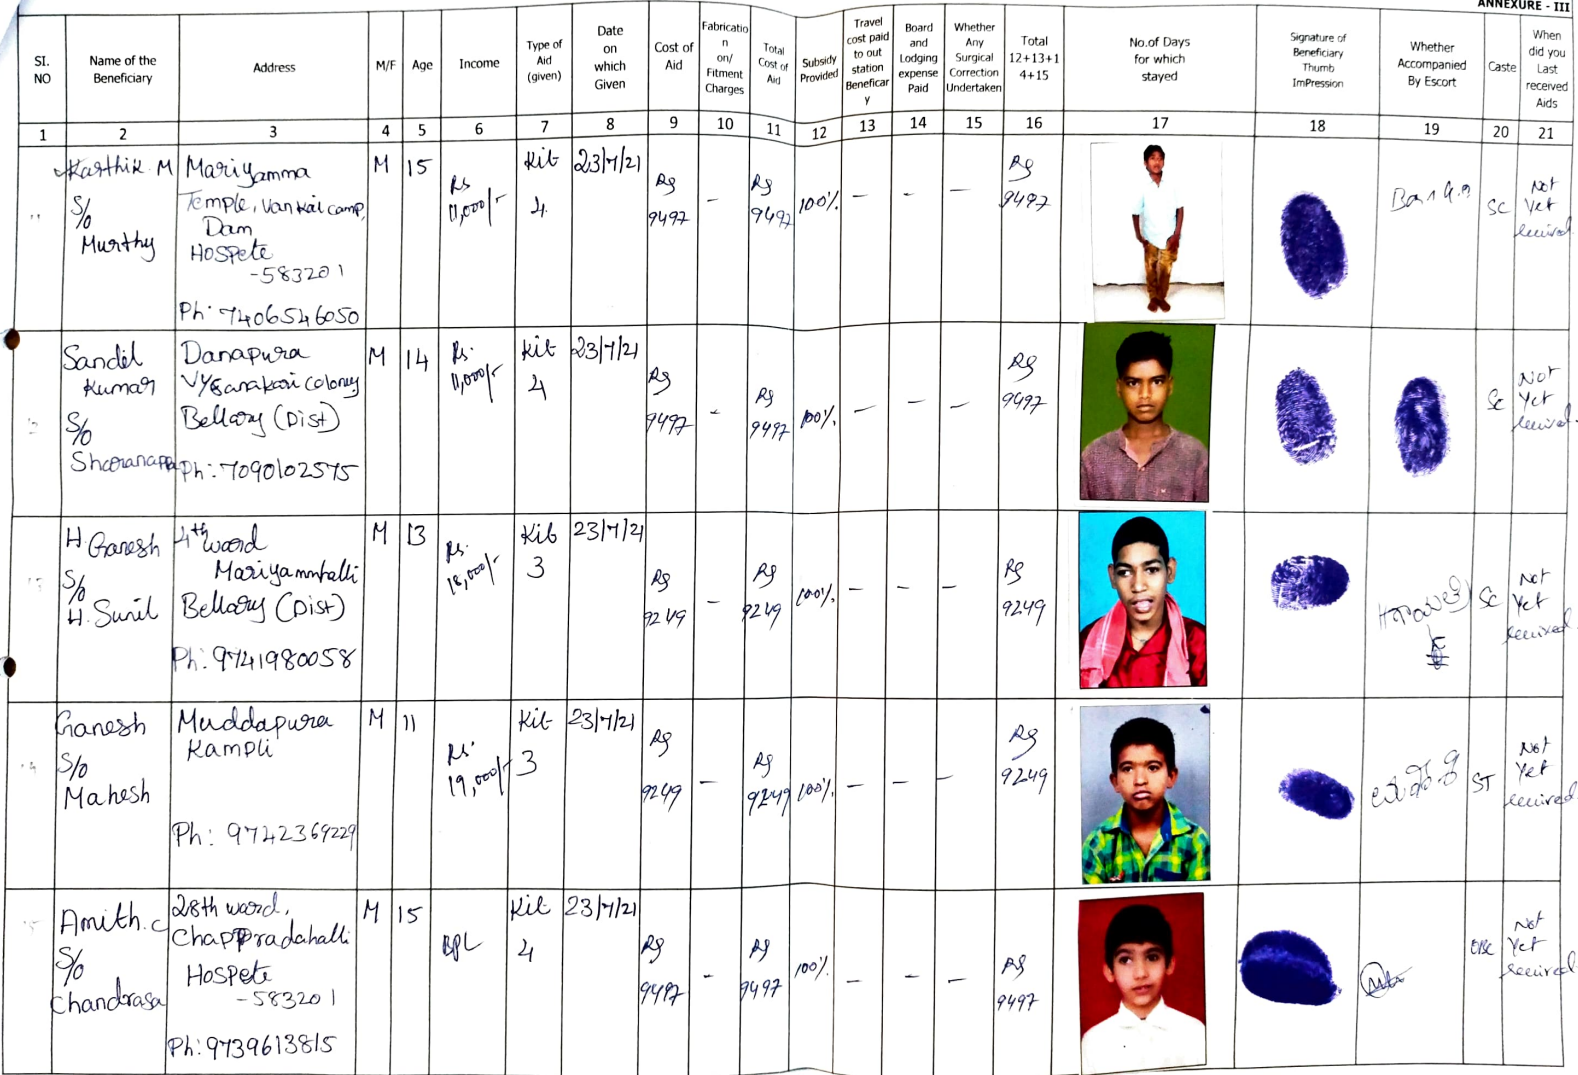 ANNEXURE - III
SI. NO
Name of the Beneficiary
Address
M/F
Age
Income
Type of Aid (given)
Date on which Given
Cost of Aid
Fabricatio n on/ Fitment Charges
Total Cost of Aid
Subsidy Provided
Travel cost paid to out station Beneficar y
Board and Lodging expense Paid
Whether Any Surgical Correction Undertaken
Total 12+13+1 4+15
No.of Days for which stayed
Signature of Beneficiary Thumb ImPression
Whether Accompanied By Escort
Caste
When did you Last received Aids
1 2 3 4 5 6 7 8 9 10 11 12 13 14 15 16 17 18 19 20 21
Karthik. M
S/o
Murthy
Mariyamma
Temple, Vankai camp,
Dam
Hospete
-583201
Ph: 7406546050
M 15
Rs
11,000/-
Kit
4
23/7/21
Rs
9497
-
Rs
9497
100%
- - -
Rs
9497
SC
Not
Yet
Sandil
Kumar
S/o
Sharanappa
Danapura
Colony
Bellary (Dist)
Ph: 7090102575
M 14
Rs.
11,000/-
Kit
4
23/7/21
Rs
9497
-
Rs
9497
100%
- - -
Rs
9497
Sc
Not
Yet
H. Ganesh
S/o
H. Sunil
4th ward
Mariyammhalli
Bellary (Dist)
Ph: 9741980058
M 13
Rs.
18,000/-
Kit
3
23/7/21
Rs
9249
-
Rs
9249
100%
- - -
Rs
9249
Sc
Not
Yet
Ganesh
S/o
Mahesh
Muddapura
Kampli
Ph: 9742369229
M 11
Rs.
19,000/-
Kit
3
23/7/21
Rs
9249
-
Rs
9249
100%
- - -
Rs
9249
ST
Not
Yet
Amith. C
S/o
Chandrasa
28th ward,
Chappradahalli
Hospete
-583201
Ph: 9739613815
M 15
BPL
Kit
4
23/7/21
Rs
9497
-
Rs
9497
100%
- - -
Rs
9497
OBC
Not
Yet